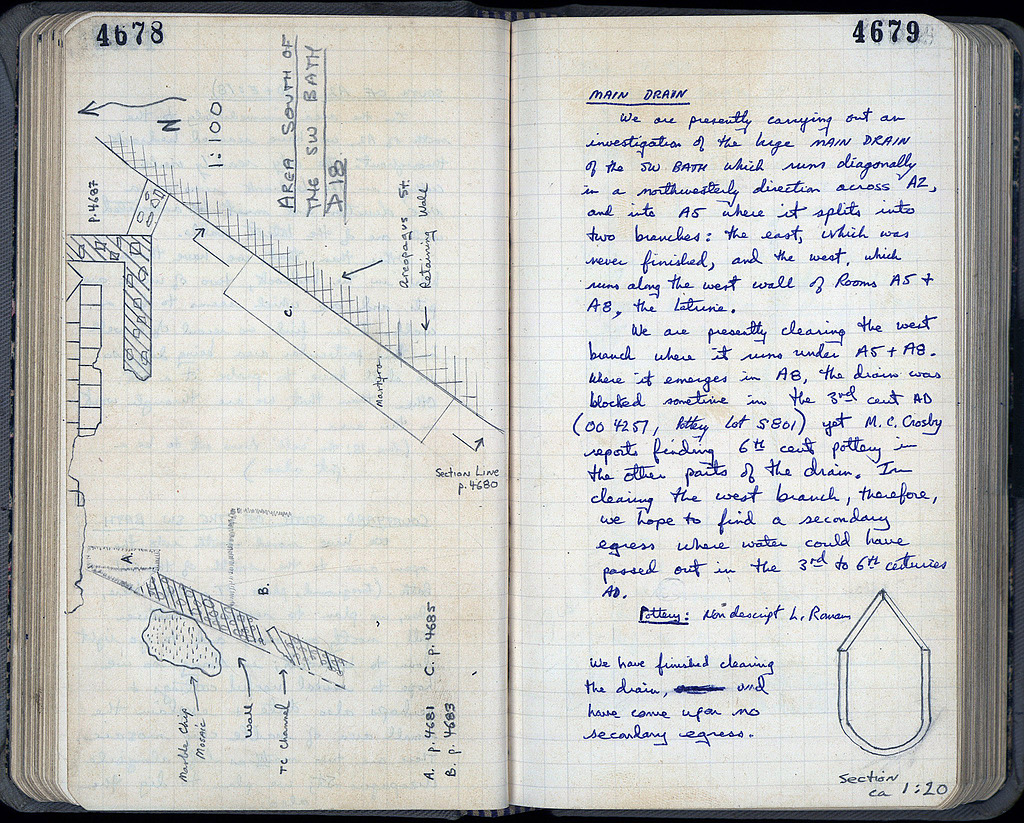 4678
N
1:100
AREA SOUTH OF
THE SW BATH
A18
p.4687
Areopagus St.
Retaining Wall
C.
Martyra
Section Line
p. 4680
A.
B.
Marble Chip
Mosaic
Wall
TC Channel
A. p. 4681 C. p. 4685
B. p. 4683
4679
MAIN DRAIN
We are presently carrying out an
investigation of the huge MAIN DRAIN
of the SW BATH which runs diagonally
in a northwesterly direction across A2,
and into A5 where it splits into
two branches: the east, which was
never finished, and the west, which
runs along the west wall of Rooms A5 +
A8, the latrine.
We are presently clearing the west
branch where it runs under A5 + A8.
Where it emerges in A8, the drain was
blocked sometime in the 3rd cent AD
(OO 4257, Pottery Lot S801) yet M.C. Crosby
reports finding 6th cent pottery in
the other parts of the drain. In
clearing the west branch, therefore,
we hope to find a secondary
egress where water could have
passed out in the 3rd to 6th centuries
AD.
Pottery: Nondescript L. Roman
We have finished clearing
the drain, and
have come upon no
secondary egress.
Section
ca 1:20